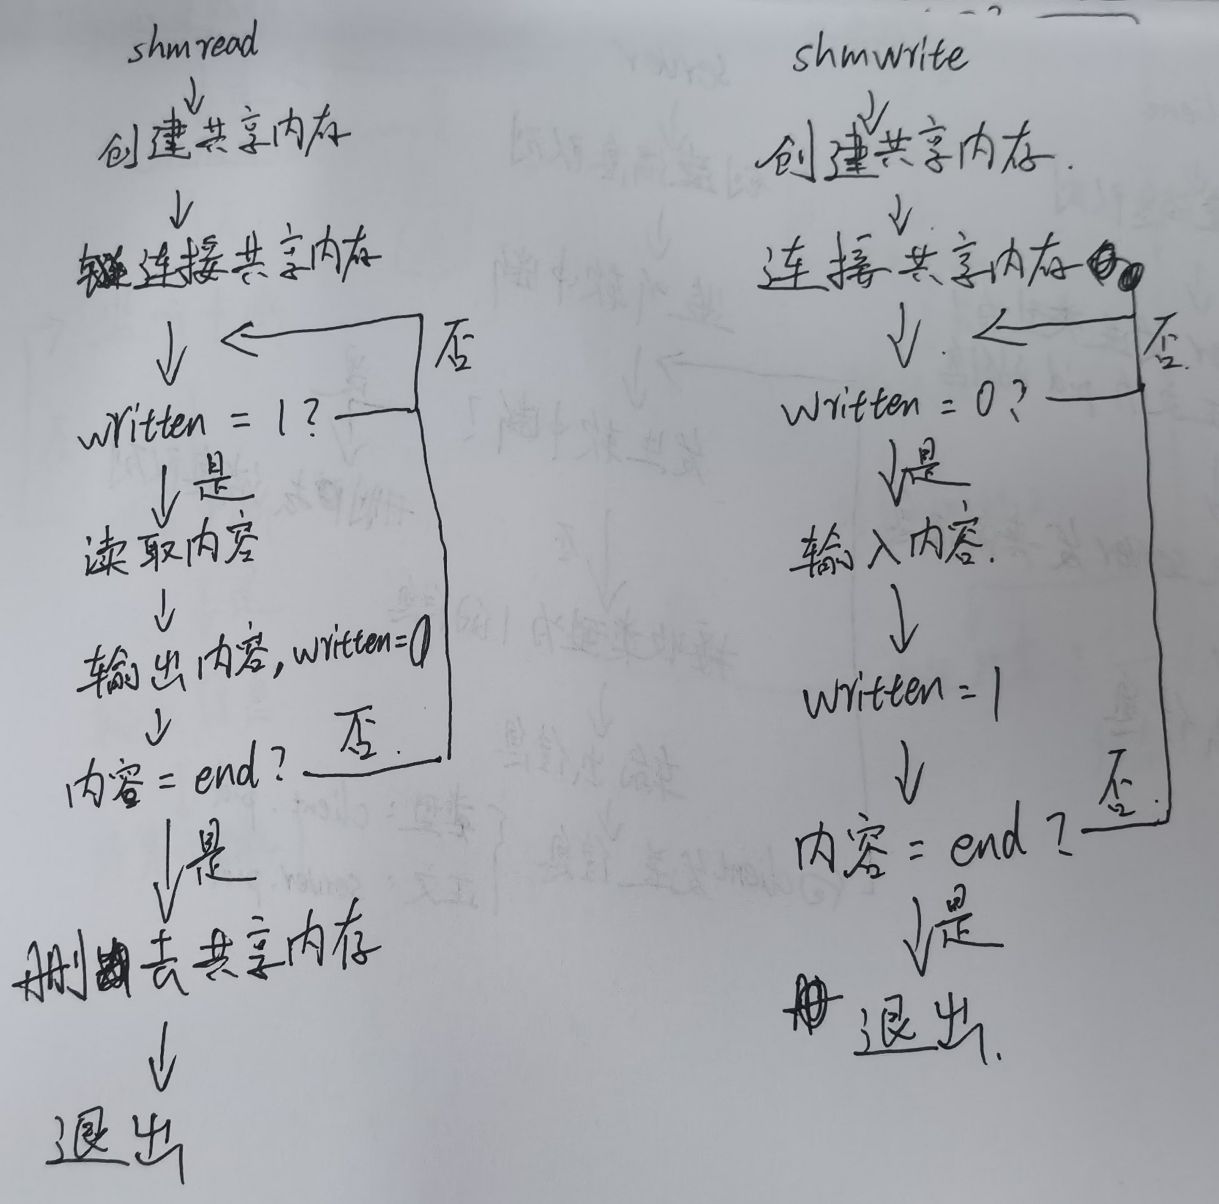 shmread
创建共享内存
连接共享内存
否
written = 1?
是
读取内容
输出内容, written=0
内容 = end? 否.
是
删去共享内存
退出
shmwrite
创建共享内存.
连接共享内存
否.
written = 0?
是
输入内容.
written = 1
否.
内容 = end?
是
退出.